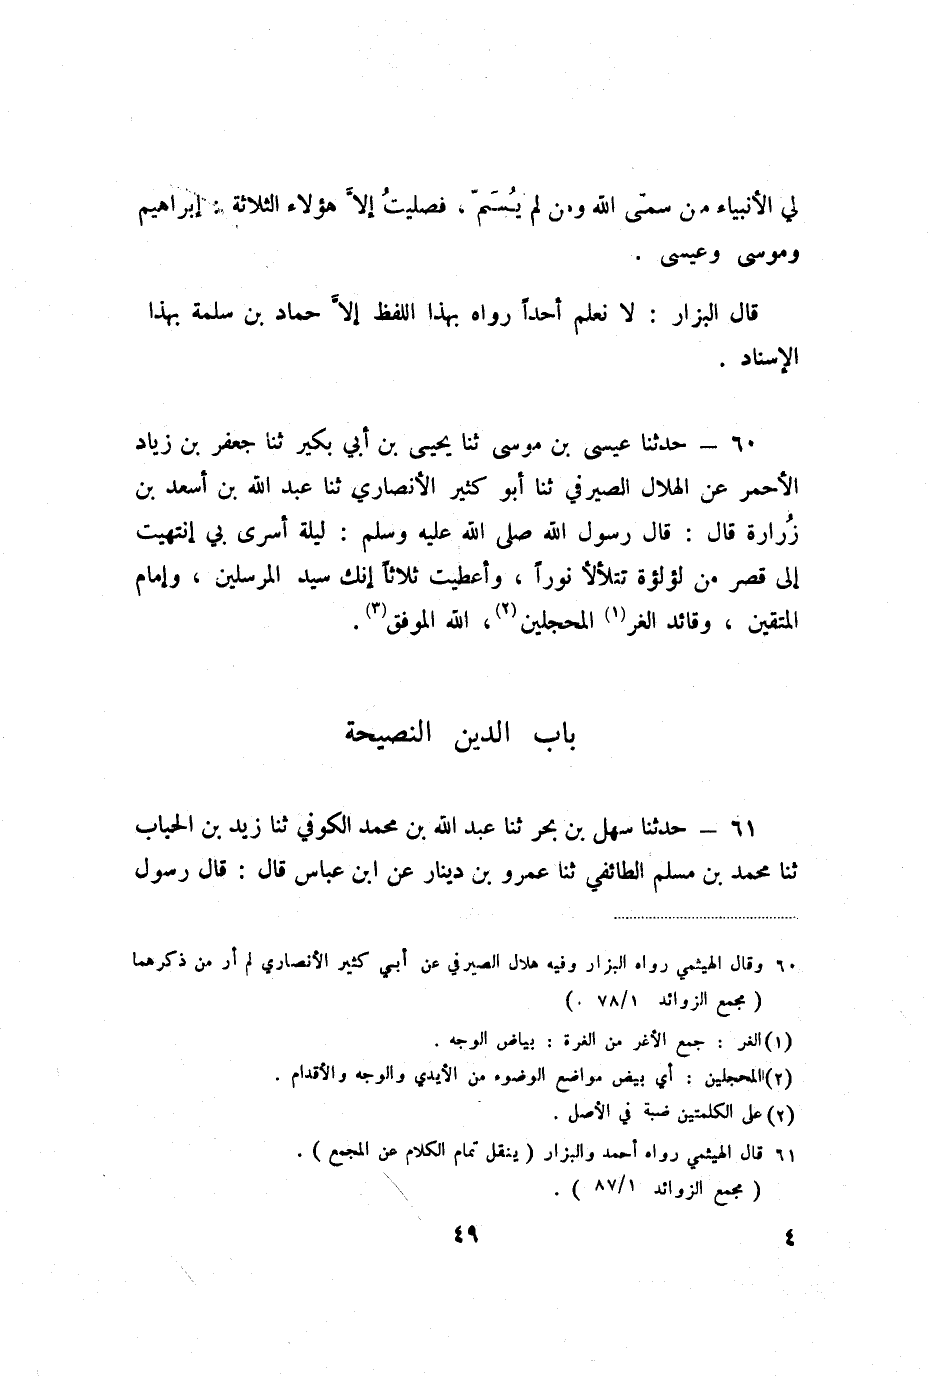 لي الأنبياء من سمّى الله ومن لم يُسَمّ ، فصليتُ إلاَّ هؤلاء الثلاثة : إبراهيم
وموسى وعيسى .
قال البزار : لا نعلم أحداً رواه بهذا اللفظ إلاَّ حماد بن سلمة بهذا
الإسناد .
٦٠ – حدثنا عيسى بن موسى ثنا يحيى بن أبي بكير ثنا جعفر بن زياد
الأحمر عن الهلال الصيرفي ثنا أبو كثير الأنصاري ثنا عبد الله بن أسعد بن
زُرارة قال : قال رسول الله صلى الله عليه وسلم : ليلة أسرى بي إنتهيت
إلى قصر من لؤلؤة تتلألأ نوراً ، وأعطيت ثلاثاً إنك سيد المرسلين ، وإمام
المتقين ، وقائد الغر(١) المحجلين(٢)، الله الموفق(٣).
باب الدين النصيحة
٦١ – حدثنا سهل بن بحر ثنا عبد الله بن محمد الكوفي ثنا زيد بن الحباب
ثنا محمد بن مسلم الطائفي ثنا عمرو بن دينار عن ابن عباس قال : قال رسول
٦٠ وقال الهيثمي رواه البزار وفيه هلال الصيرفي عن أبي كثير الأنصاري لم أر من ذكرهما
( مجمع الزوائد ٧٨/١ .)
(١)الغر : جمع الأغر من الغرة : بياض الوجه .
(٢)المحجلين : أي بيض مواضع الوضوء من الأيدي والوجه والأقدام .
(٢)على الكلمتين ضبة في الأصل .
٦١ قال الهيثمي رواه أحمد والبزار ( ينقل تمام الكلام عن المجمع ) .
( مجمع الزوائد ٨٧/١ ) .
٤ ٤٩